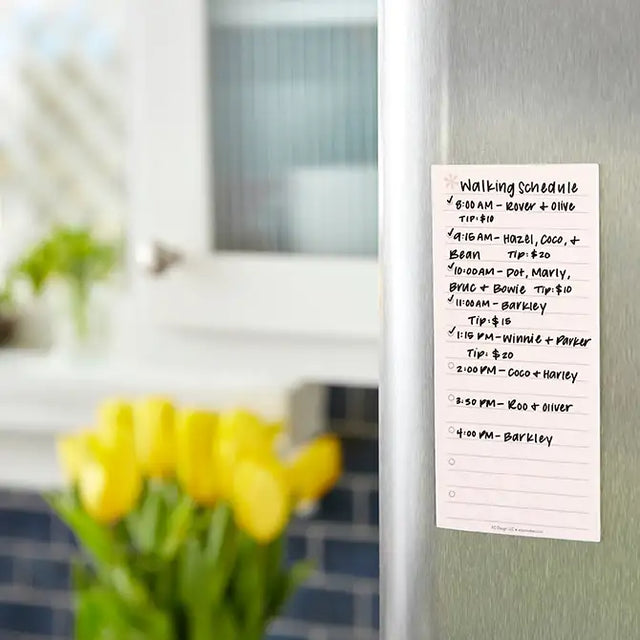 Walking Schedule
✓ 8:00 AM - Rover + Olive
Tip: $10
✓ 9:15 AM - Hazel, Coco, +
Bean Tip: $20
✓ 10:00 AM - Dot, Marly,
Bruc & Bowie Tip: $10
✓ 11:00 AM - Barkley
Tip: $15
✓ 1:15 PM - Winnie + Parker
Tip: $20
2:00 PM - Coco + Harley
3:30 PM - Roo + Oliver
4:00 PM - Barkley